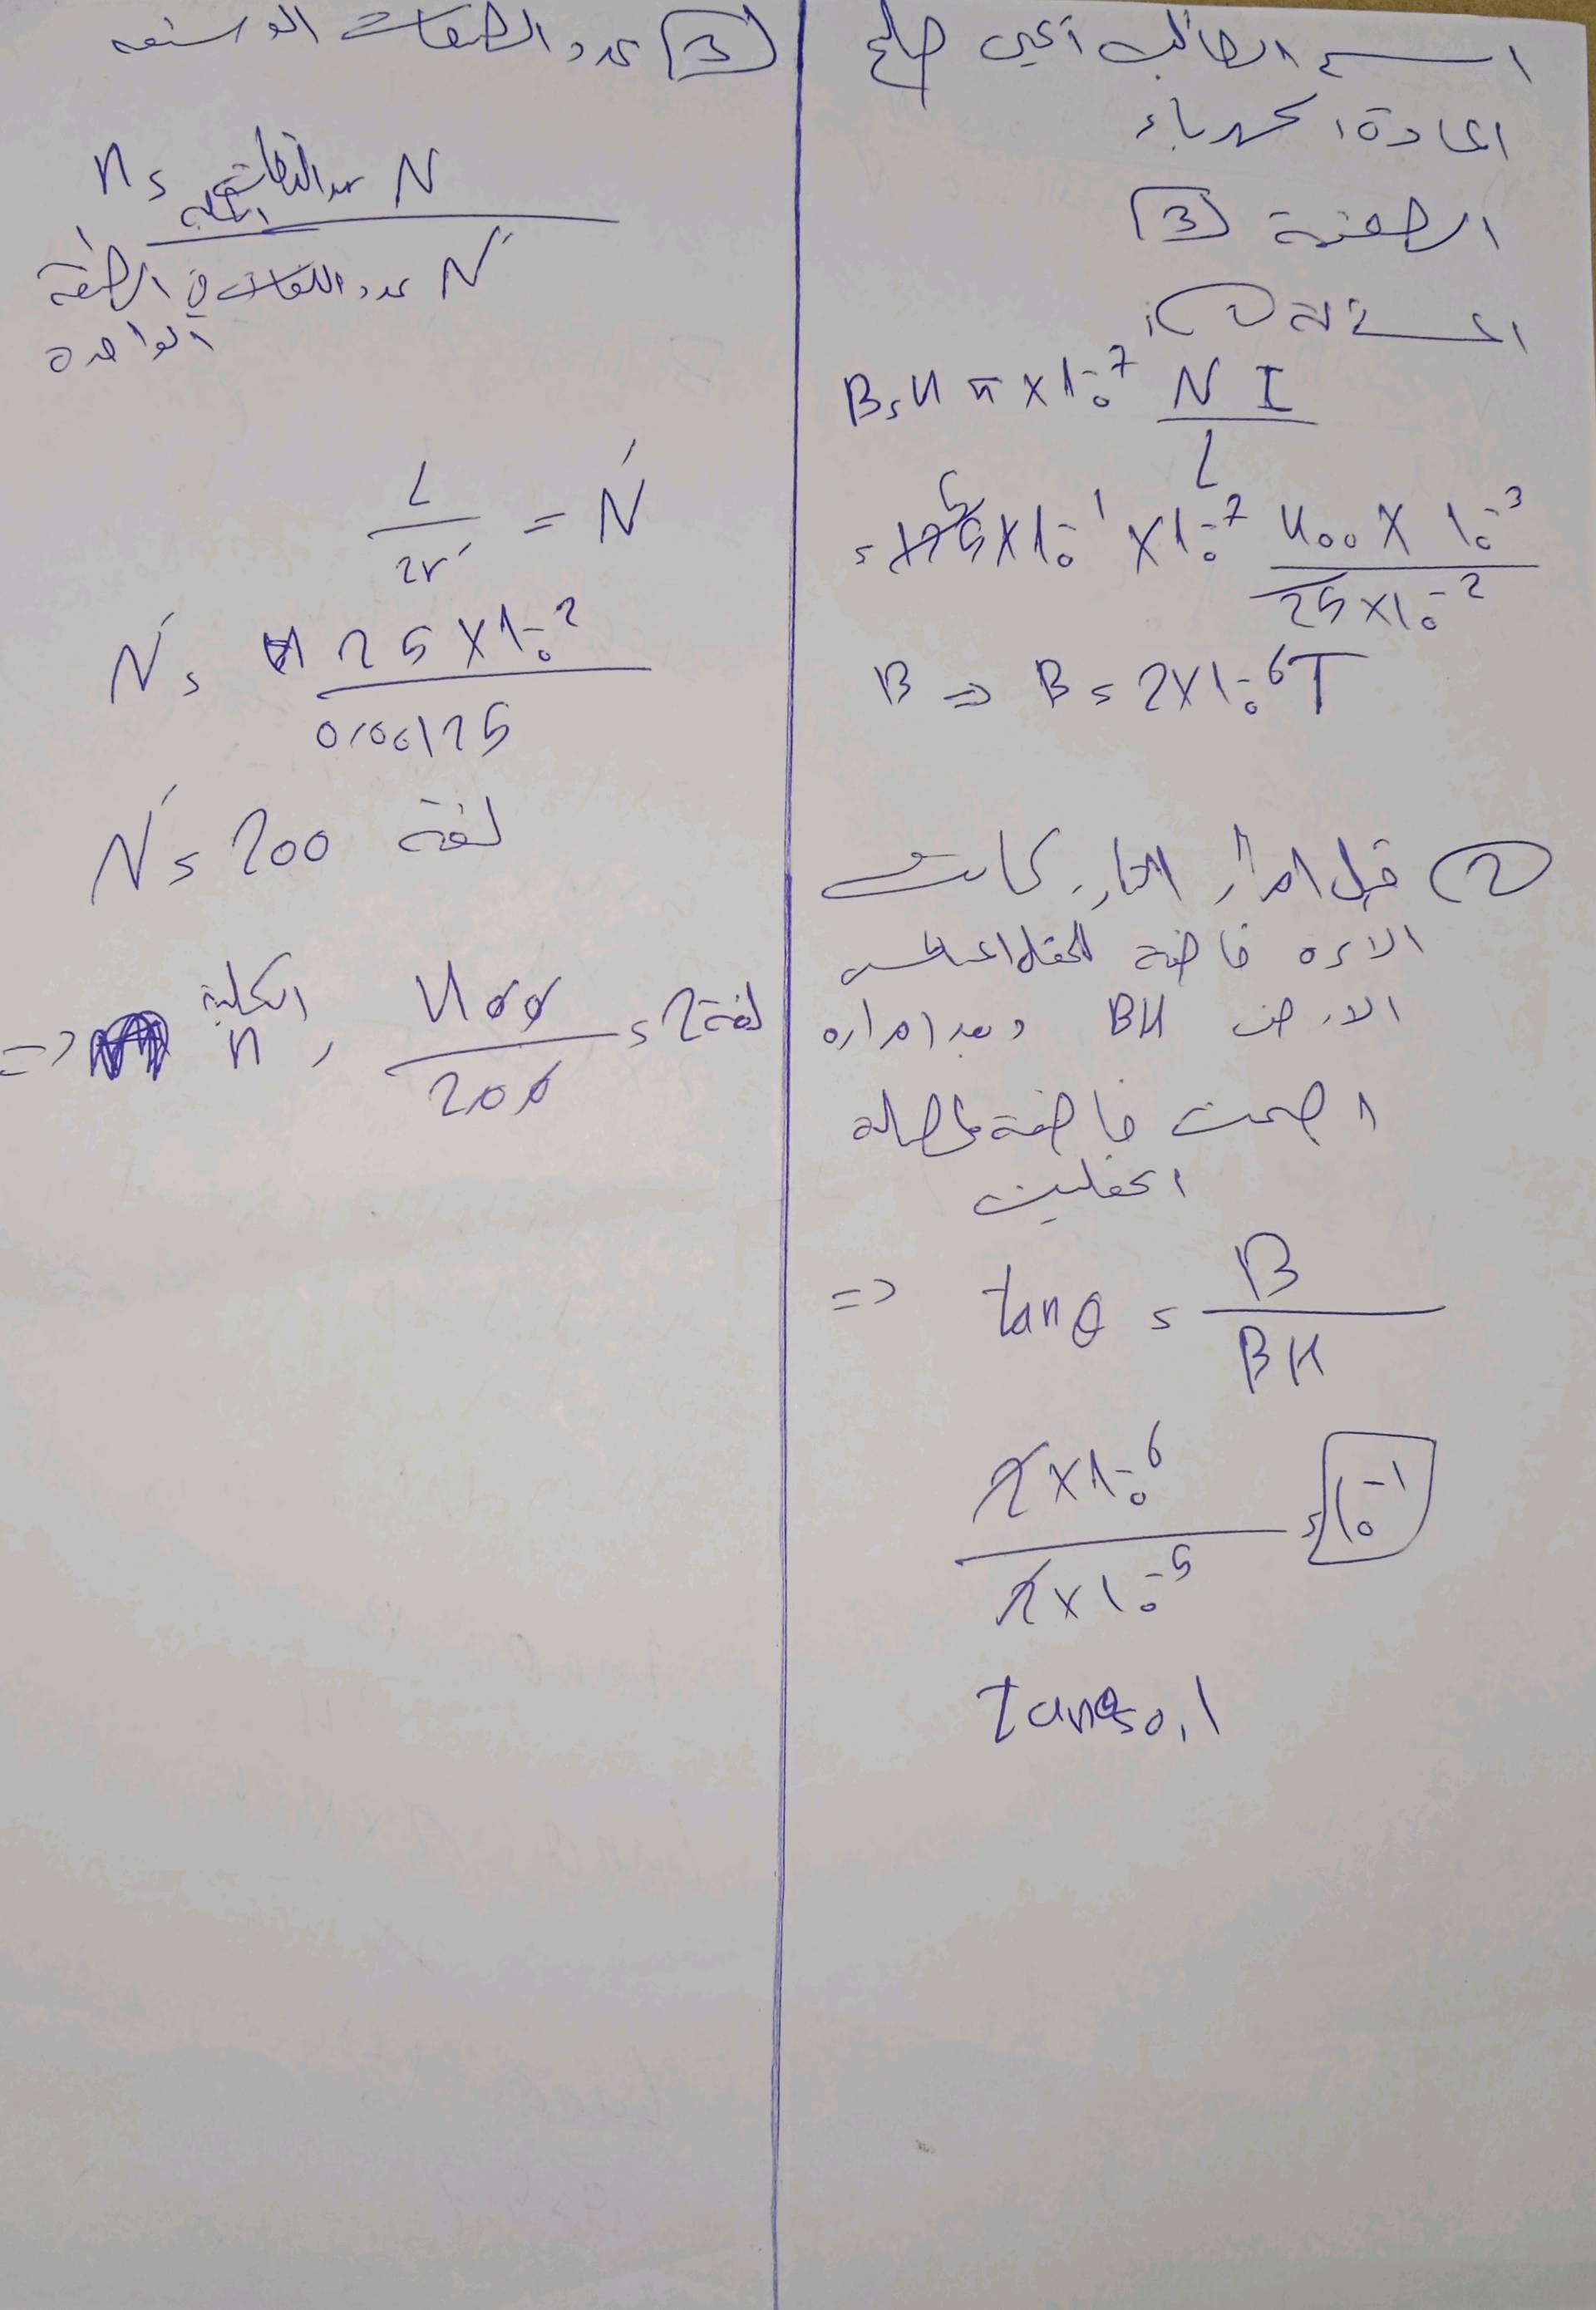 اسم الطالب أيمن صالح
المادة: كهرباء
الصفحة 3
المسألة (1):
B = 4π × 10^-7 N I / L
= 125 × 10^-1 × 10^-7 400 × 10^-3 / 25 × 10^-2
B => B = 2 × 10^-6 T
(2) قبل امرار التيار كانت
الابرة خاضعة للحقل المغناطيسي
الارضي BH وبعد امراره
اصبحت خاضعة لمحصلة
الحقلين
=> tan θ = B / BH
2 × 10^-6 / 2 × 10^-5 = 10^-1
tan θ = 0,1
3 عدد الطبقات
n = عدد اللفات الكلية N / عدد اللفات في الطبقة الواحدة N'
L / 2r' = N'
N' = 25 × 10^-2 / 0,00125
N' = 200 لفة
=> الكلية n = 400 / 200 = 2 لفة